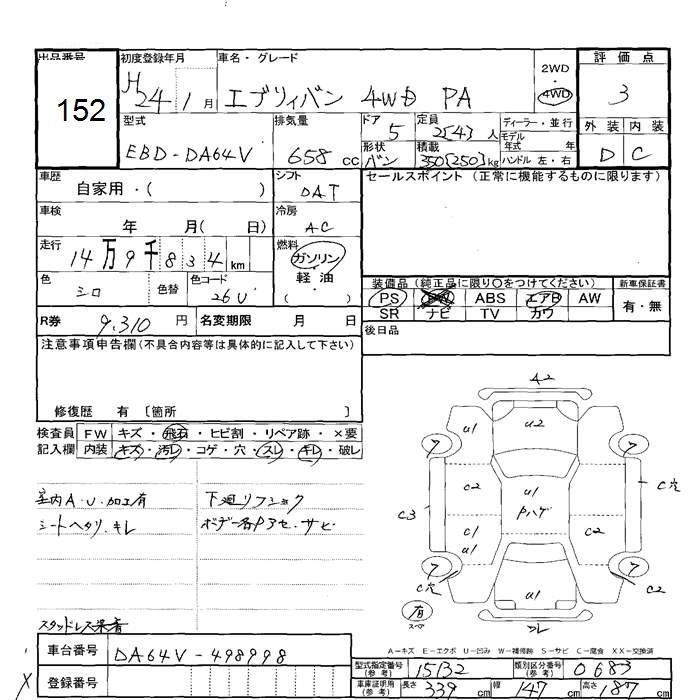 出品番号 初度登録年月 車名・グレード 評価点
152
H24 1月 エブリィバン 4WD PA 2WD・4WD 3
型式 排気量 ドア 定員 ディーラー・並行 外装 内装
EBD-DA64V 658cc 5 2[4]人 モデル年式 年式 D C
形状 バン 積載 350[250]kg ハンドル 左・右
車歴 自家用・( ) シフト DAT セールスポイント (正常に機能するものに限ります)
車検 年 月( 日) 冷房 AC
走行 14万9千834km 燃料 ガソリン・軽油・( )
色 シロ 色替 色コード 26U
装備品(純正品に限り〇をつけてください) 新車保証書
PS ABS エアB AW 有・無
SR ナビ TV カワ
R券 9,310円 名変期限 月 日 後日品
注意事項申告欄(不具合内容等は具体的に記入して下さい)
修復歴 有 [箇所 ]
検査員 FW キズ・飛石・ヒビ割・リペア跡・×要
記入欄 内装 キズ・汚レ・コゲ・穴・スレ・キレ・破レ
室内A.U.加工有 下廻リフショック
シートヘタリ.キレ ボデー各P3セ.サビ
スタッドレス楽着
A2
u1 u2
7 7
C2 u1 C穴
C3 Pハゲ
C1 C2
u1
7 7
C穴 u1 C2
有 スペ
フレ
A-キズ E-エクボ U-凹み W-補修跡 S-サビ C-腐食 XX-交換済
車台番号 DA64V-498998
型式指定番号(参考) 15132 類別区分番号(参考) 0683
登録番号
車庫証明用(参考) 長さ 339cm 幅 147cm 高さ 187cm